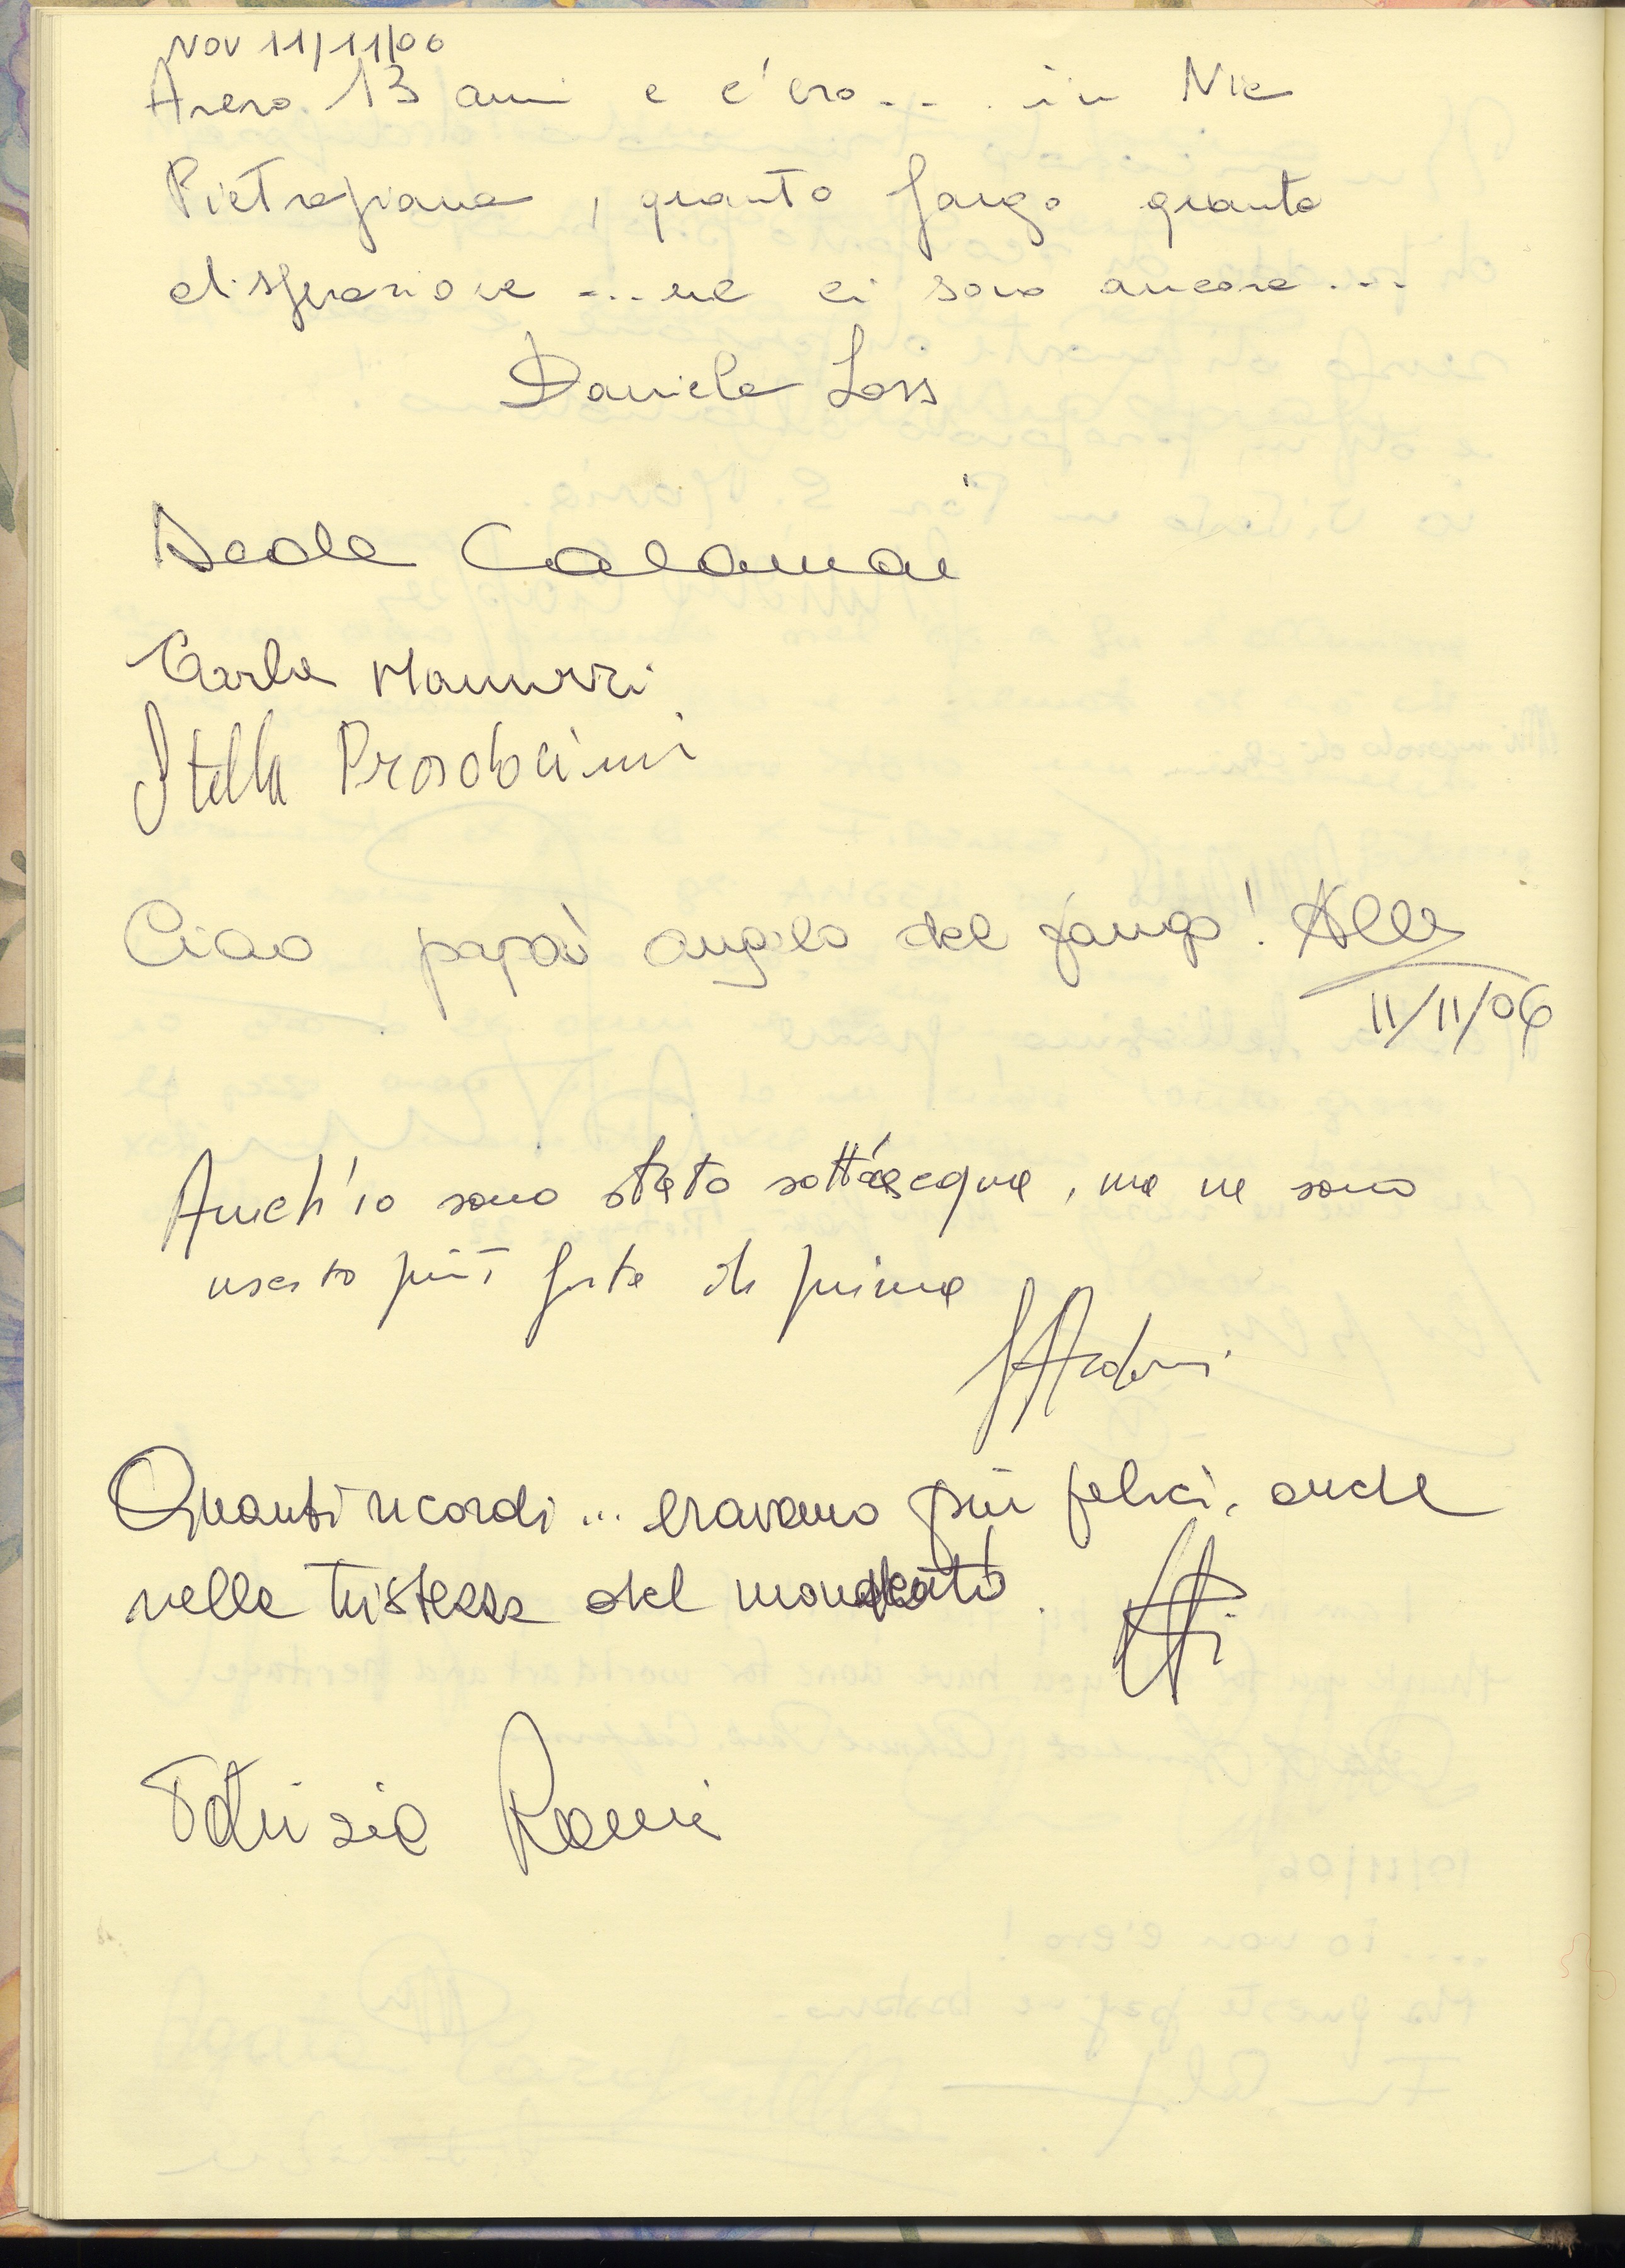 NOV 11/11/06
Avevo 13 anni e c'ero.... in Via
Pietrapiana, quanto fango quanta
disperazione ....ne ci sono ancora...
Daniela Loss
Calamai
Carla Mannucci
Stella Prosdocimi
Ciao papà angelo del fango! Alle
11/11/06
Anch'io sono stato sott'acqua, ma ne sono
uscito più forte di prima
Quanti ricordi... eravamo più felici, anche
nelle tristezza del momento.
Patrizia